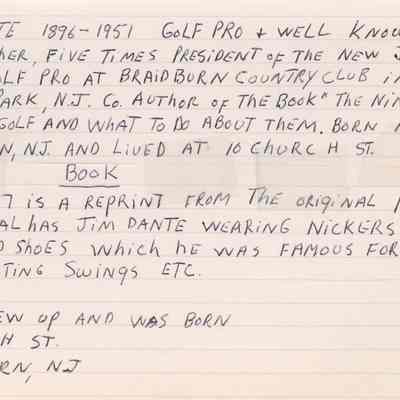 TE 1896-1951 GOLF PRO + WELL KNOW
HER, FIVE TIMES PRESIDENT OF THE NEW J
OLF PRO AT BRAIDBURN COUNTRY CLUB IN
PARK, N.J. CO. AUTHOR OF THE BOOK" THE NIN
GOLF AND WHAT TO DO ABOUT THEM. BORN
N, N.J. AND LIVED AT 10 CHURCH ST.
BOOK
7 IS A REPRINT FROM THE ORIGINAL
AL HAS JIM DANTE WEARING NICKERS
D SHOES WHICH HE WAS FAMOUS FOR
TING SWINGS ETC.
EW UP AND WAS BORN
H ST.
RN, NJ